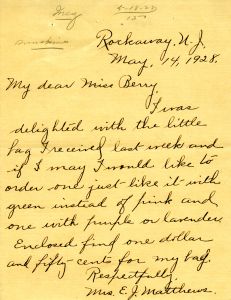 5-18-28
Rockaway, N.J.
May, 14, 1928.
My dear Miss Berry,
I was
delighted with the little
bag I received last week and
if I may I would like to
order one just like it with
green instead of pink and
one with purple or lavender.
Enclosed find one dollar
and fifty cents for my bag.
Respectfully,
Mrs. E. J. Matthews.